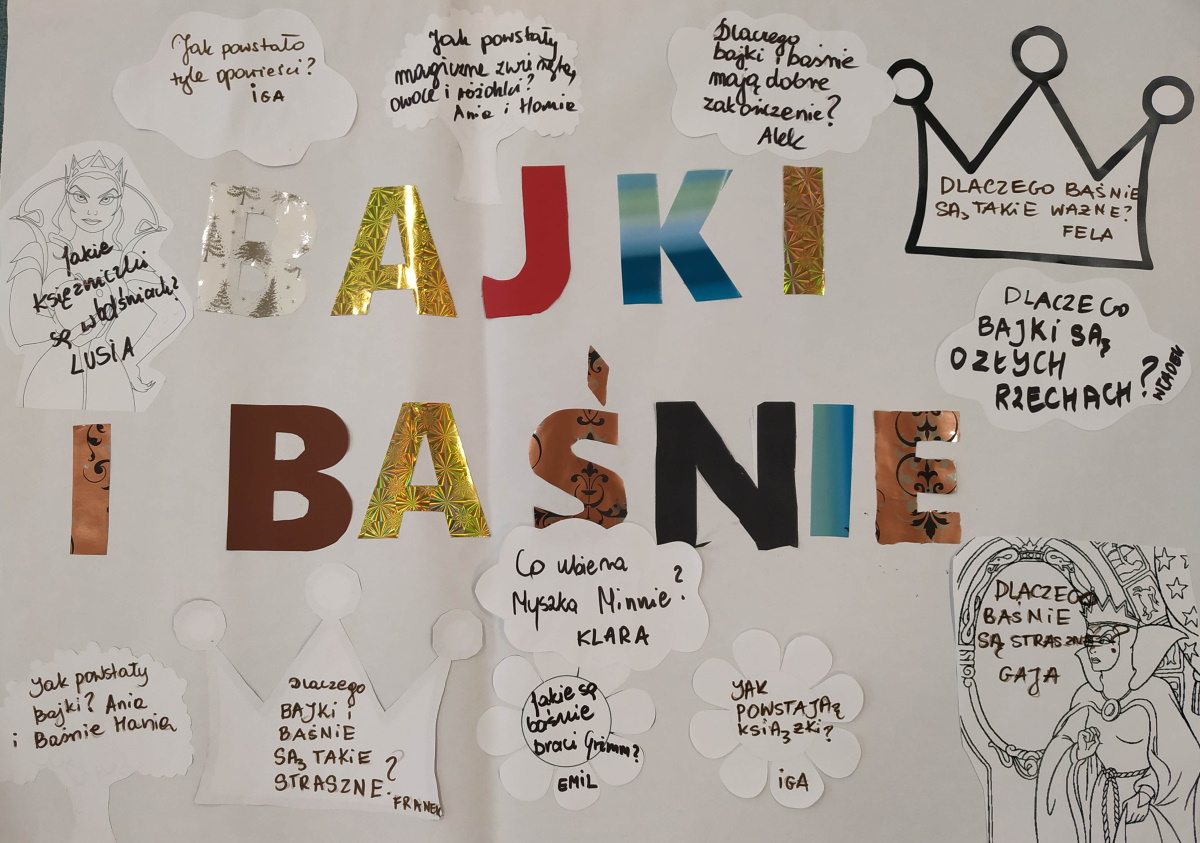 Jak powstało
tyle opowieści?
IGA
Jak powstały
magiczne zwierzęta,
owoce i różdżki?
Ania i Hania
Dlaczego
bajki i baśnie
mają dobre
zakończenie?
Alek
DLACZEGO BAŚNIE
SĄ TAKIE WAŻNE?
FELA
Jakie
księżniczki
są w baśniach?
LUSIA
BAJKI
DLACZEGO
BAJKI SĄ
O ZŁYCH
RZECHACH?
I BAŚNIE
Co ubiera
Myszka Minnie?
KLARA
DLACZEGO
BAŚNIE
SĄ STRASZNE
GAJA
Jak powstały
Bajki? Ania
i Baśnie Hania
Dlaczego
BAJKI i
BAŚNIE
SĄ TAKIE
STRASZNE?
FRANEK
Jakie są
baśnie
braci Grimm?
EMIL
JAK
POWSTAJĄ
KSIĄŻKI?
IGA